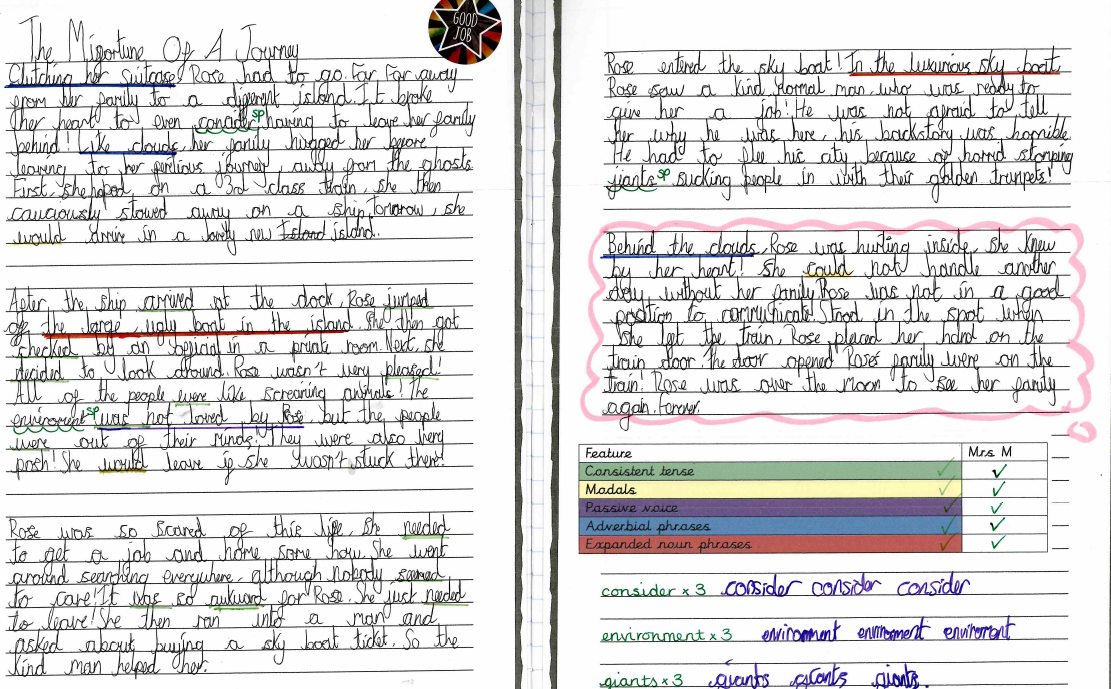 The Misfortune Of A Journey
GOOD
JOB
Clutching her suitcase, Rose had to go far far away
from her family to a different island. It broke
her heart to even consider sp having to leave her family
behind! Like clouds, her family hugged her before
leaving to her perilous journey, away from the ghosts
First, she hoped on a 3rd class train, she then
cauciously stowed away on a ship. Tomorrow, she
would arrive in a lovely new Island island.
After the ship arrived at the dock, Rose jumped
of the large, ugly boat in the island. She then got
checked by an official in a private room. Next, she
decided to look around. Rose wasn't very pleased!
All of the people were like screaming animals! The
enviroment sp was not loved by Rose, but the people
were out of their minds! They were also very
posh! She would leave if she wasn't stuck there!
Rose was so scared of this life, she needed
to get a job and home some how. She went
around searching everywhere, although nobody seemed
to care! It was so aukward for Rose. She just needed
to leave! She then ran into a man and
asked about buying a sky boat ticket. So the
kind man helped her.
Rose entered the sky boat! In the luxurious sky boat
Rose saw a kind, normal man who was ready to
give her a job! He was not afraid to tell
her why he was here, his backstory was horrible
He had to flee his city because of horrid stomping
jiants sp sucking people in with their golden trumpets!
Behind the clouds, Rose was hurting inside, she knew
by her heart! She could not handle another
day without her family. Rose was not in a good
position to communicate! Stood in the spot when
she left the train, Rose placed her hand on the
train door. The door opened! Roses family were on the
train! Rose was over the moon to see her family
again. Forever.
Feature Mrs M
Consistent tense
Modals
Passive voice
Adverbial phrases
Expanded noun phrases
consider x 3 consider consider consider
environment x 3 environment environment environment
giants x 3 giants giants giants.